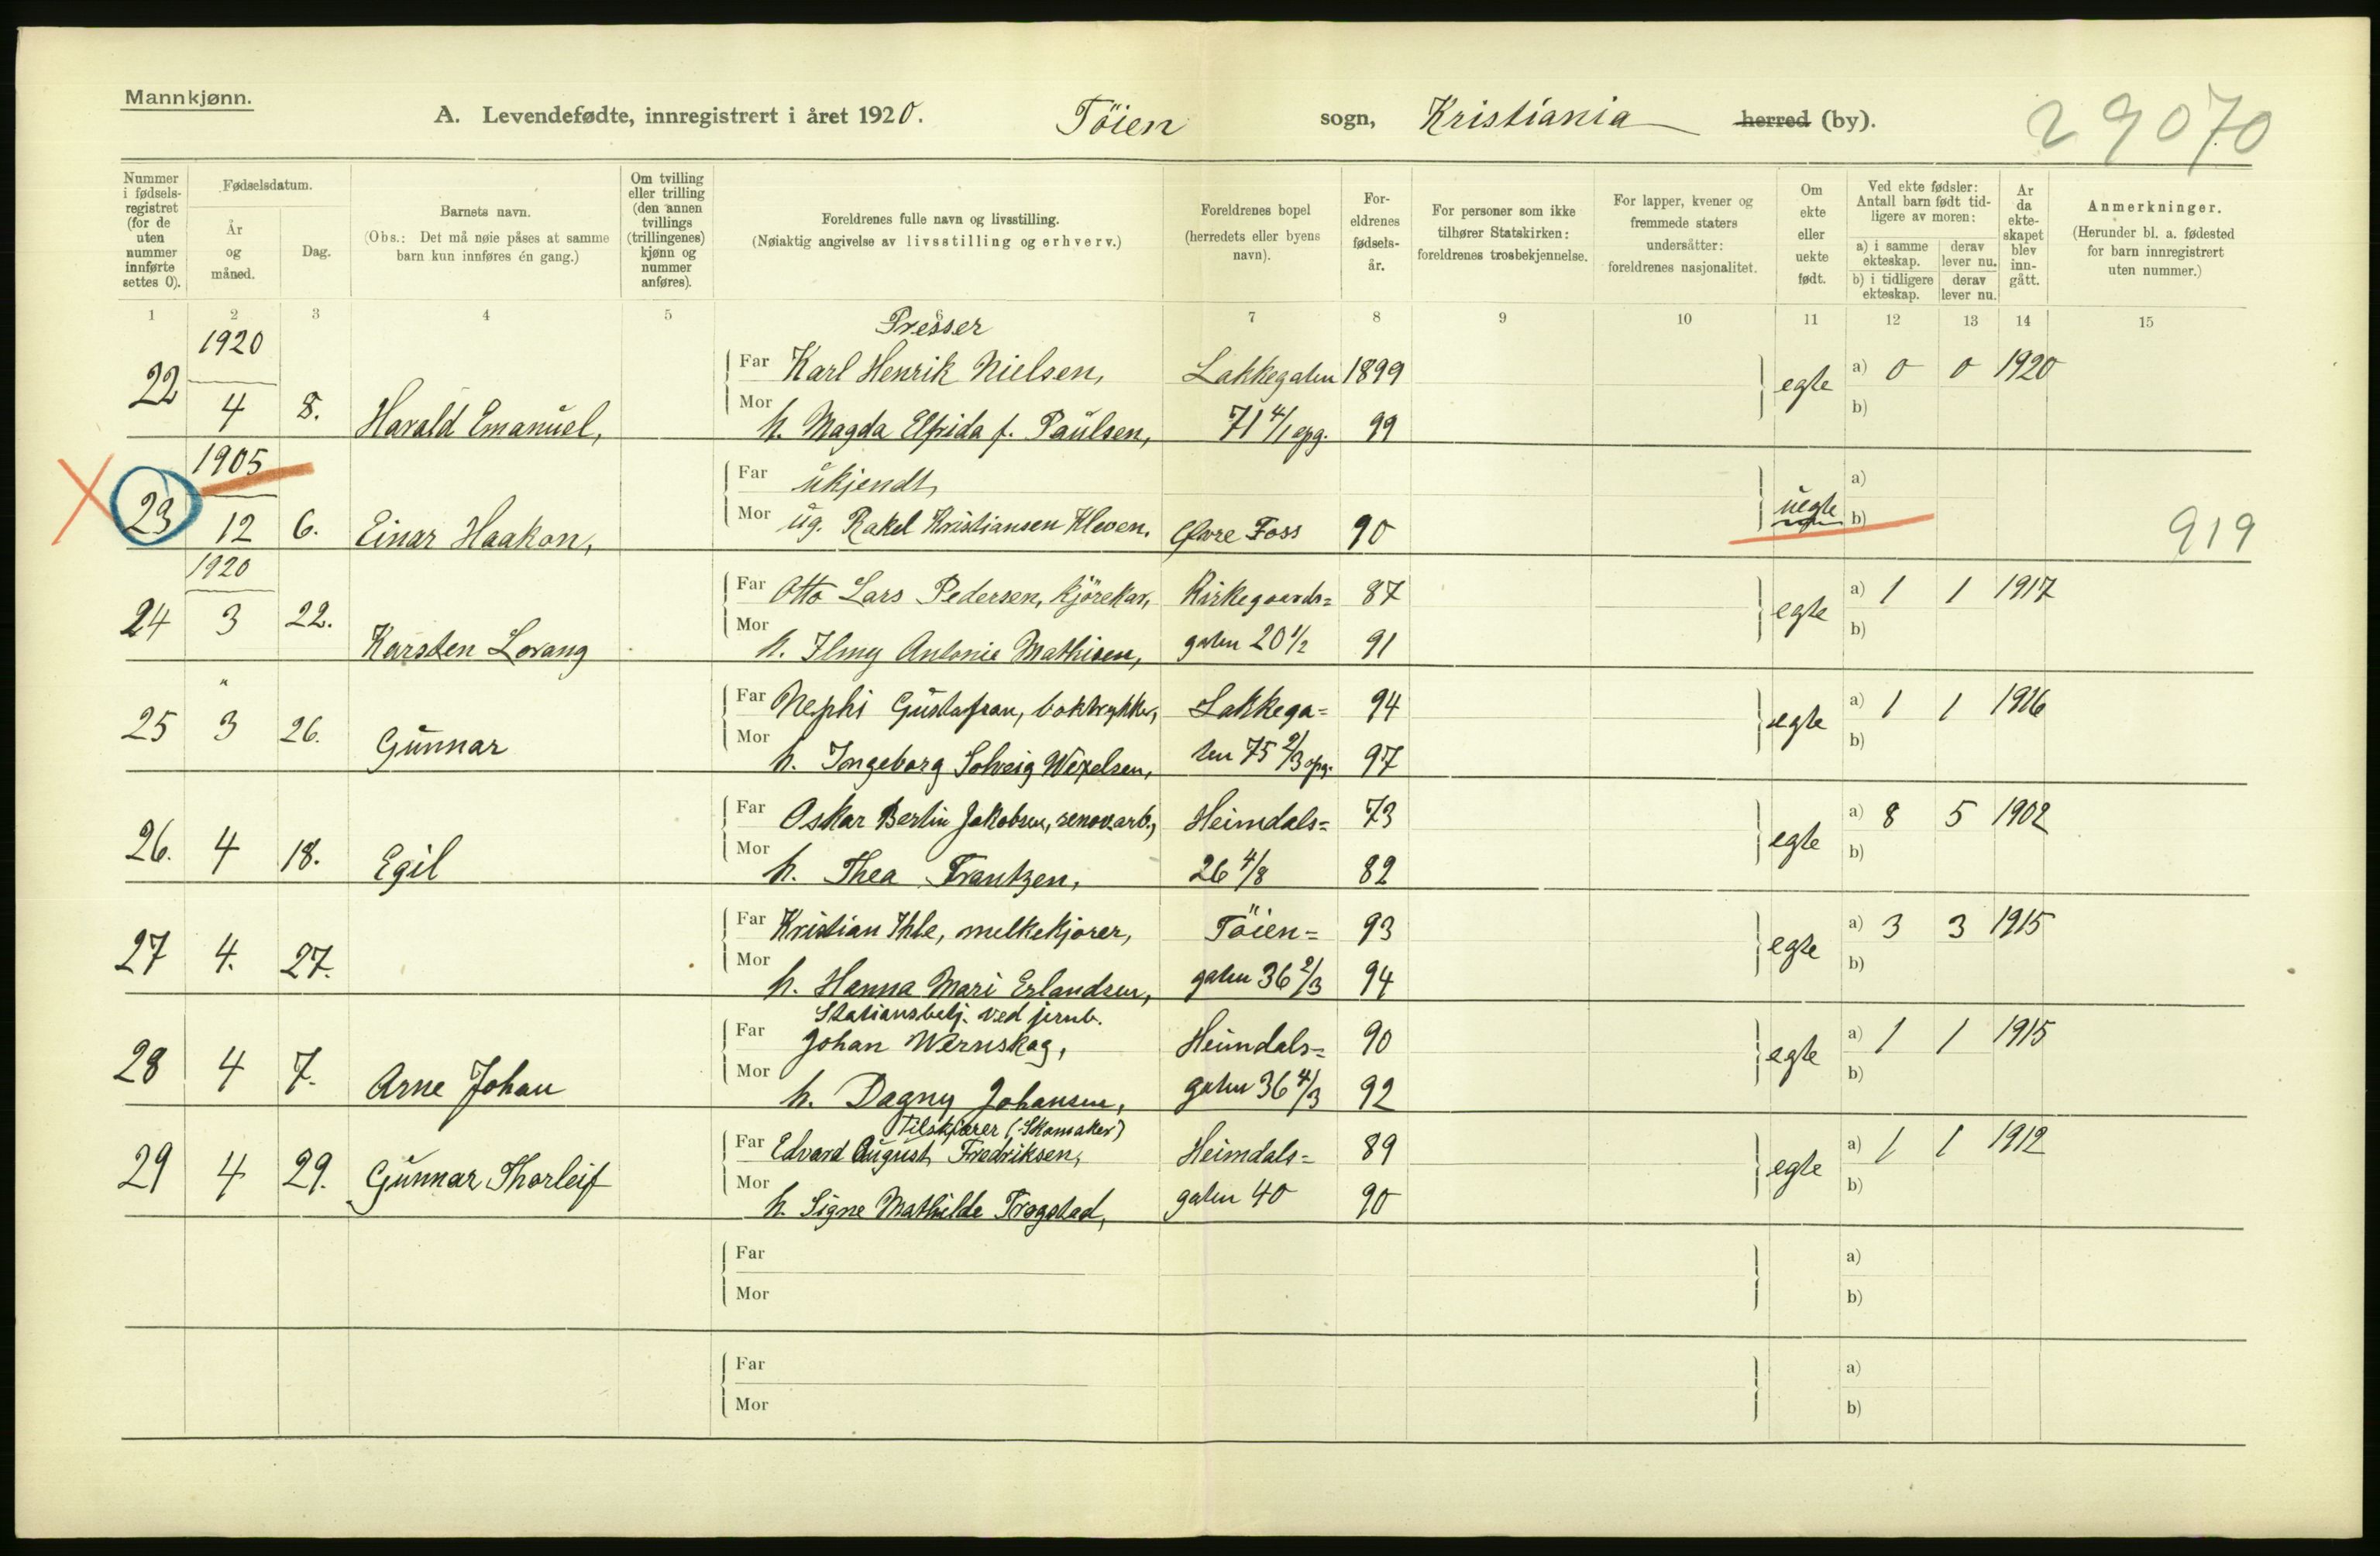 Mannkjønn.
A. Levendefødte, innregistrert i året 1920. Töien sogn, Kristiania herred (by).
29070
Nummer i fødsels-registret (for de uten nummer innførte settes 0).
Fødselsdatum.
År og måned.
Dag.
Barnets navn.
(Obs.: Det må nøie påses at samme barn kun innføres én gang.)
Om tvilling eller trilling (den annen tvillings (trillingenes) kjønn og nummer anføres).
Foreldrenes fulle navn og livsstilling.
(Nøiaktig angivelse av livsstilling og erhverv.)
Foreldrenes bopel (herredets eller byens navn).
For-eldrenes fødsels-år.
For personer som ikke tilhører Statskirken: foreldrenes trosbekjennelse.
For lapper, kvener og fremmede staters undersåtter: foreldrenes nasjonalitet.
Om ekte eller uekte født.
Ved ekte fødsler: Antall barn født tid-ligere av moren:
a) i samme ekteskap. derav lever nu.
b) i tidligere ekteskap. derav lever nu.
År da ekte-skapet blev inn-gått.
Anmerkninger.
(Herunder bl. a. fødested for barn innregistrert uten nummer.)
1 2 3 4 5 6 7 8 9 10 11 12 13 14 15
1920
Presser
Far Karl Henrik Nielsen, Lakkegaten 1899 a) 0 0 1920
22 4 8. Harald Emanuel, egte
Mor h. Magda Elfrida f. Paulsen, 71 4/1 opg. 99 b)
1905
Far ukjendt, a)
23 12 6. Einar Haakon, uegte
Mor ug. Rakel Kristiansen Kleven. Øvre Foss 90 b)
919
1920
Far Otto Lars Pedersen, kjörekar, Kirkegaards= 87 a) 1 1 1917
24 3 22. Karsten Lorang egte
Mor h. Ilmy Antonie Mathisen, gaten 20 1/2 91 b)
"
Far Nephi Gustafsan, boktrykker, Lakkega= 94 a) 1 1 1916
25 3 26. Gunnar egte
Mor h. Ingeborg Solveig Wexelsen, ten 75 2/3 opg. 97 b)
Far Oskar Berlin Jakobsen, renov.arb., Heimdals= 73 a) 8 5 1902
26. 4 18. Egil egte
Mor h. Thea Frantzen, 26 4/8 82 b)
Far Kristian Ihle, melkekjører, Töien= 93 a) 3 3 1915
27 4. 27. egte
Mor h. Hanna Mari Erlandsen, gaten 36 2/3 94 b)
Stationsbetj. ved jernb.
Far Johan Wernskag, Heimdals= 90 a) 1 1 1915
28 4 7. Arne Johan egte
Mor h. Dagny Johansen, gaten 36 4/3 92 b)
Tilskjærer (Skomaker)
Far Edvard August Fredriksen, Heimdals= 89 a) 1 1 1912
29 4 29. Gunnar Thorleif egte
Mor h. Signe Mathilde Trøgstad, gaten 40 90 b)
Far a)
Mor b)
Far a)
Mor b)